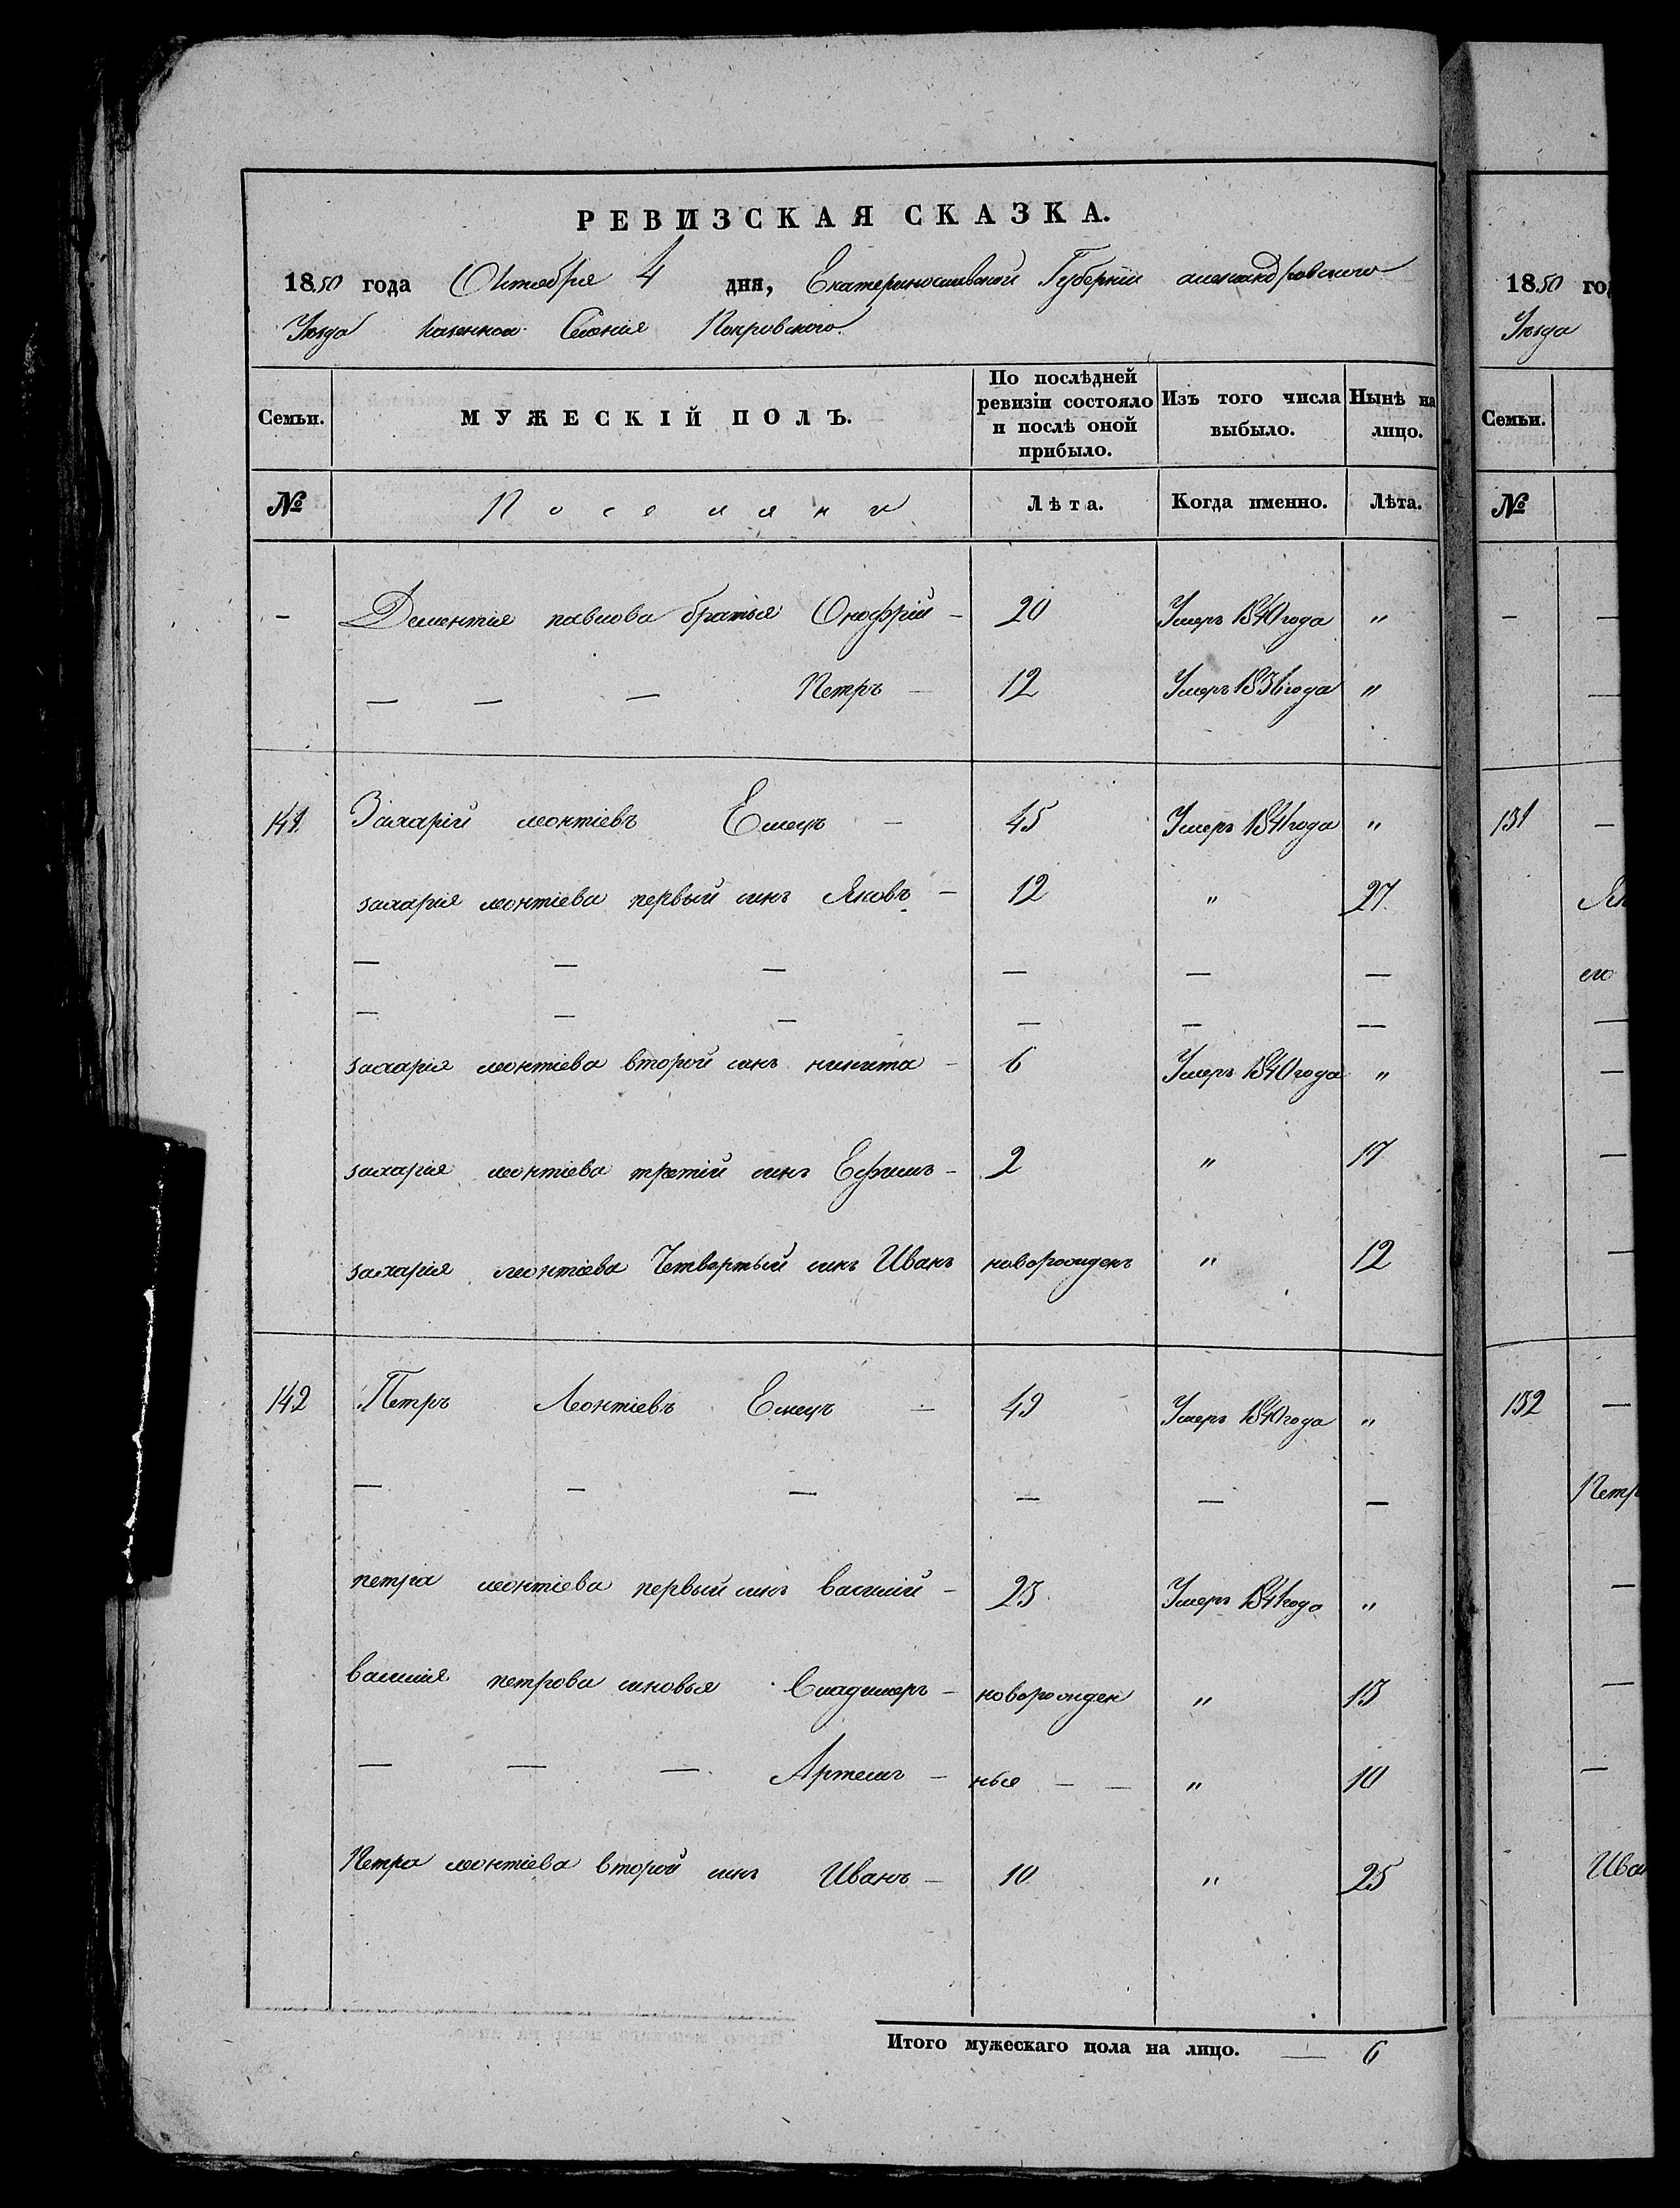 РЕВИЗСКАЯ СКАЗКА.
1850 года Октября 4 дня, Екатеринославской Губернии александровского
Уезда казенное Селение Покровского
Семьи. МУЖЕСКІЙ ПОЛЪ. По послѣдней ревизіи состояло и послѣ оной прибыло. Изъ того числа выбыло. Нынѣ на лицо.
№ Поселяни Лѣта. Когда именно. Лѣта.
— Дементія павлова братья Онофрій — 20 Умеръ 1840 года "
— — — Петръ — 12 Умеръ 1836 года "
141 Захарій леонтіевъ Емецъ — 45 Умеръ 1841 года "
захарія леонтіева первый синъ Яковъ — 12 " 27
— — — — — —
— — — — — —
захарія леонтіева второй синъ никита — 6 Умеръ 1840 года "
захарія леонтіева третій синъ Ефимъ — 2 " 17
захарія леонтіева Четвертый синъ Иванъ новорожденъ " 12
142 Петръ Леонтіевъ Емецъ — 49 Умеръ 1840 года "
— — — — — —
петра леонтіева первый синъ василій — 23 Умеръ 1841 года "
василія петрова синовья Владимеръ — новорожден " 13
— — — Артемъ — ныя — — " 10
Петра леонтіева второй синъ Иванъ — 10 " 25
Итого мужескаго пола на лицо. — 6
1850 го
Уезда
Семьи.
№
—
131 —
Як
его
132 —
Петр
Иван